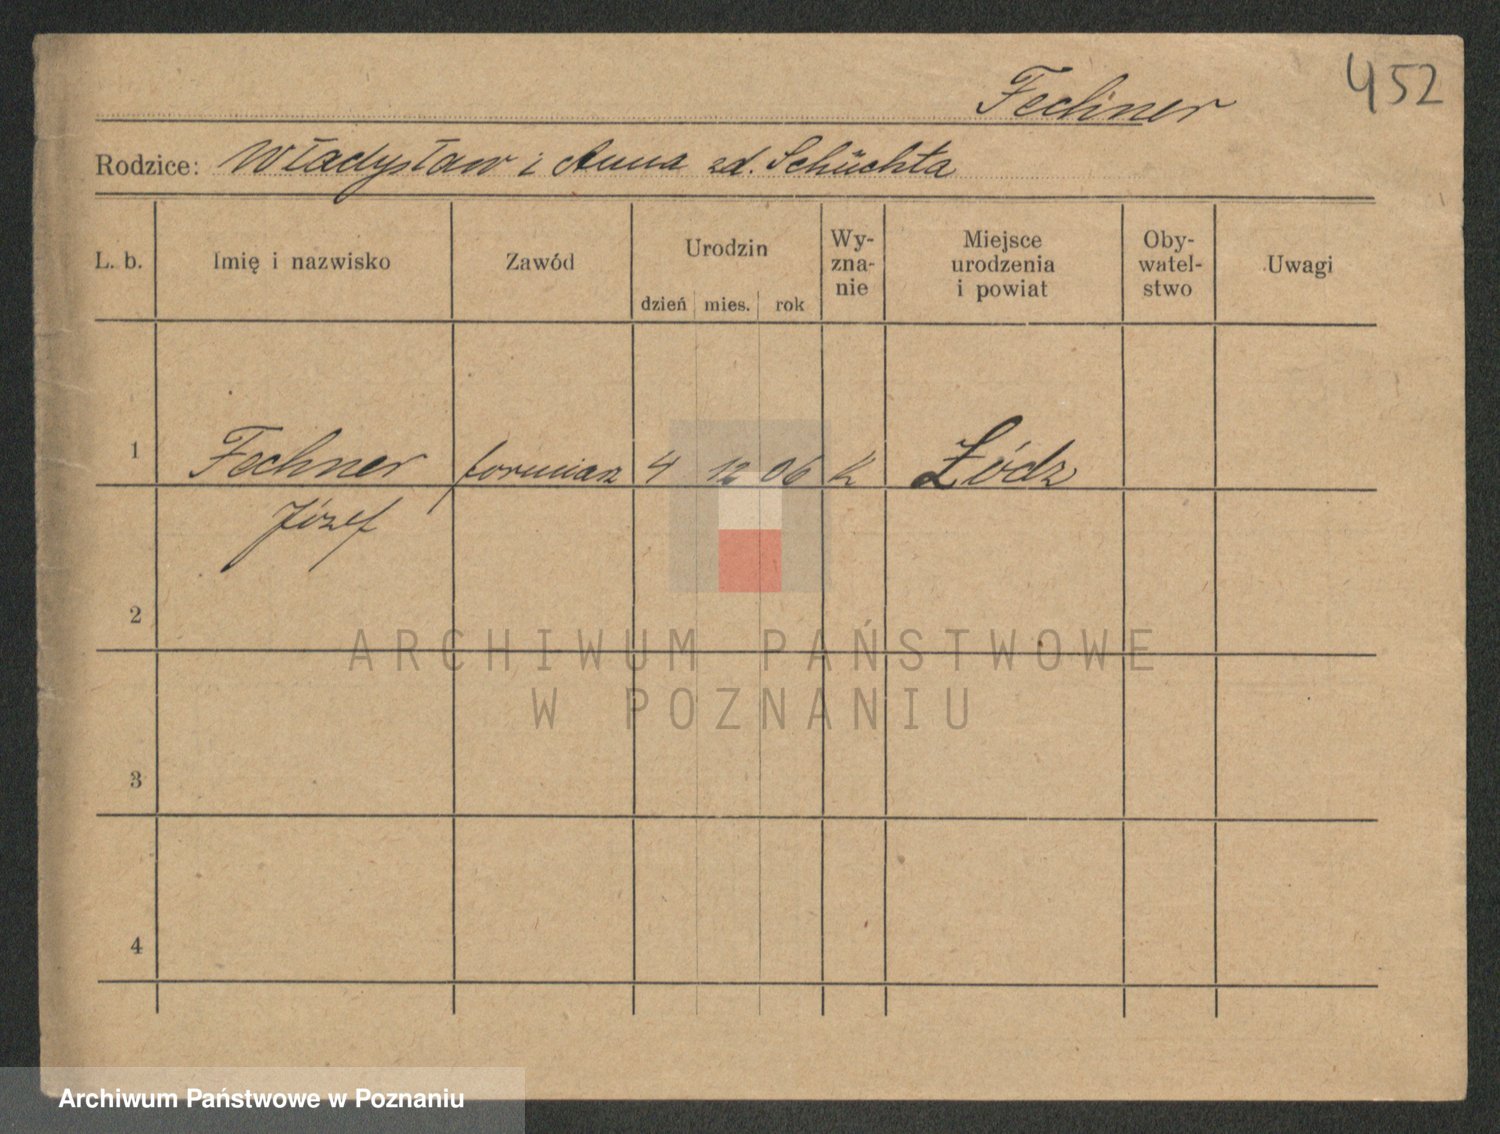 452
Fechner
Rodzice: Władysław i Anna zd. Schüchta
L. b. Imię i nazwisko Zawód Urodzin Wy-zna-nie Miejsce urodzenia i powiat Oby-watel-stwo Uwagi
dzień mies. rok
1 Fechner formiarz 4 12 06 K Łódz
Józef
2
ARCHIWUM PAŃSTWOWE
W POZNANIU
3
4
Archiwum Państwowe w Poznaniu